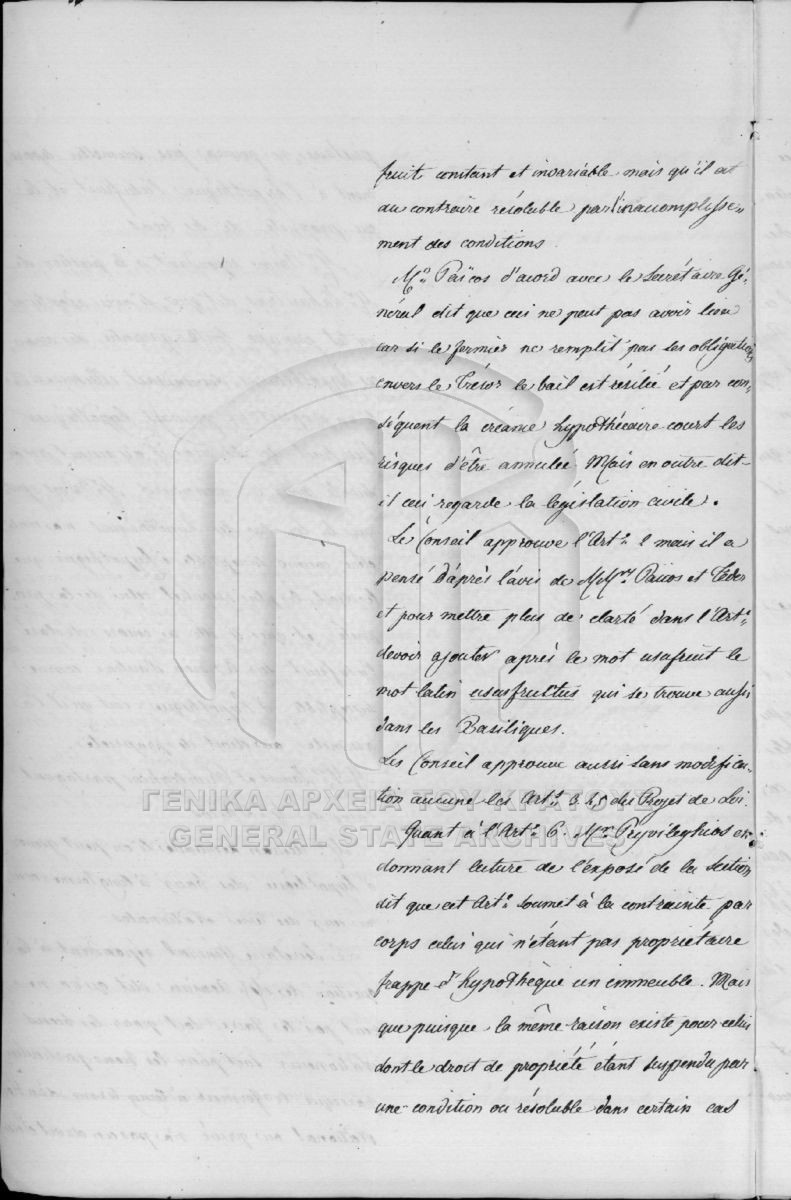 fruit constant et invariable mais qu'il est
au contraire résoluble par l'inaccomplisse„
ment des conditions.
Mr. Païcos d'acord avec le Secrétaire Gé„
néral dit que ceci ne peut pas avoir lieu
car si le fermier ne remplit pas ses obligations
envers le Trésor le bail est résilié et par con„
séquent la créance hypothécaire court les
risques d'être annulée. Mais en outre dit-
il ceci regarde la législation civile.
Le Conseil approuve l'Art: 1 mais il a
pensé d'après l'avis de MMrs Païcos et Feder
et pour mettre plus de clarté dans l'Art:
devoir ajouter après le mot usufruit le
mot latin ususfructus qui se trouve aussi
dans les Basiliques.
Les Conseil approuve aussi sans modifica„
tion aucune les Arts: 3. 4. 5 du Projet de Loi.
ΓΕΝΙΚΑ ΑΡΧΕΙΑ ΤΟΥ ΚΡΑΤΟΥΣ
GENERAL STATE ARCHIVES
Quant à l'Art: 6. Mr. Provileghios en
donnant lecture de l'exposé de la Section
dit que cet Art: soumet à la contrainte par
corps celui qui n'étant pas propriétaire
frappe d'hypothèque un immeuble. Mais
que puisque la même raison existe pour celui
dont le droit de propriété étant suspendu par
une condition ou résoluble dans certain cas